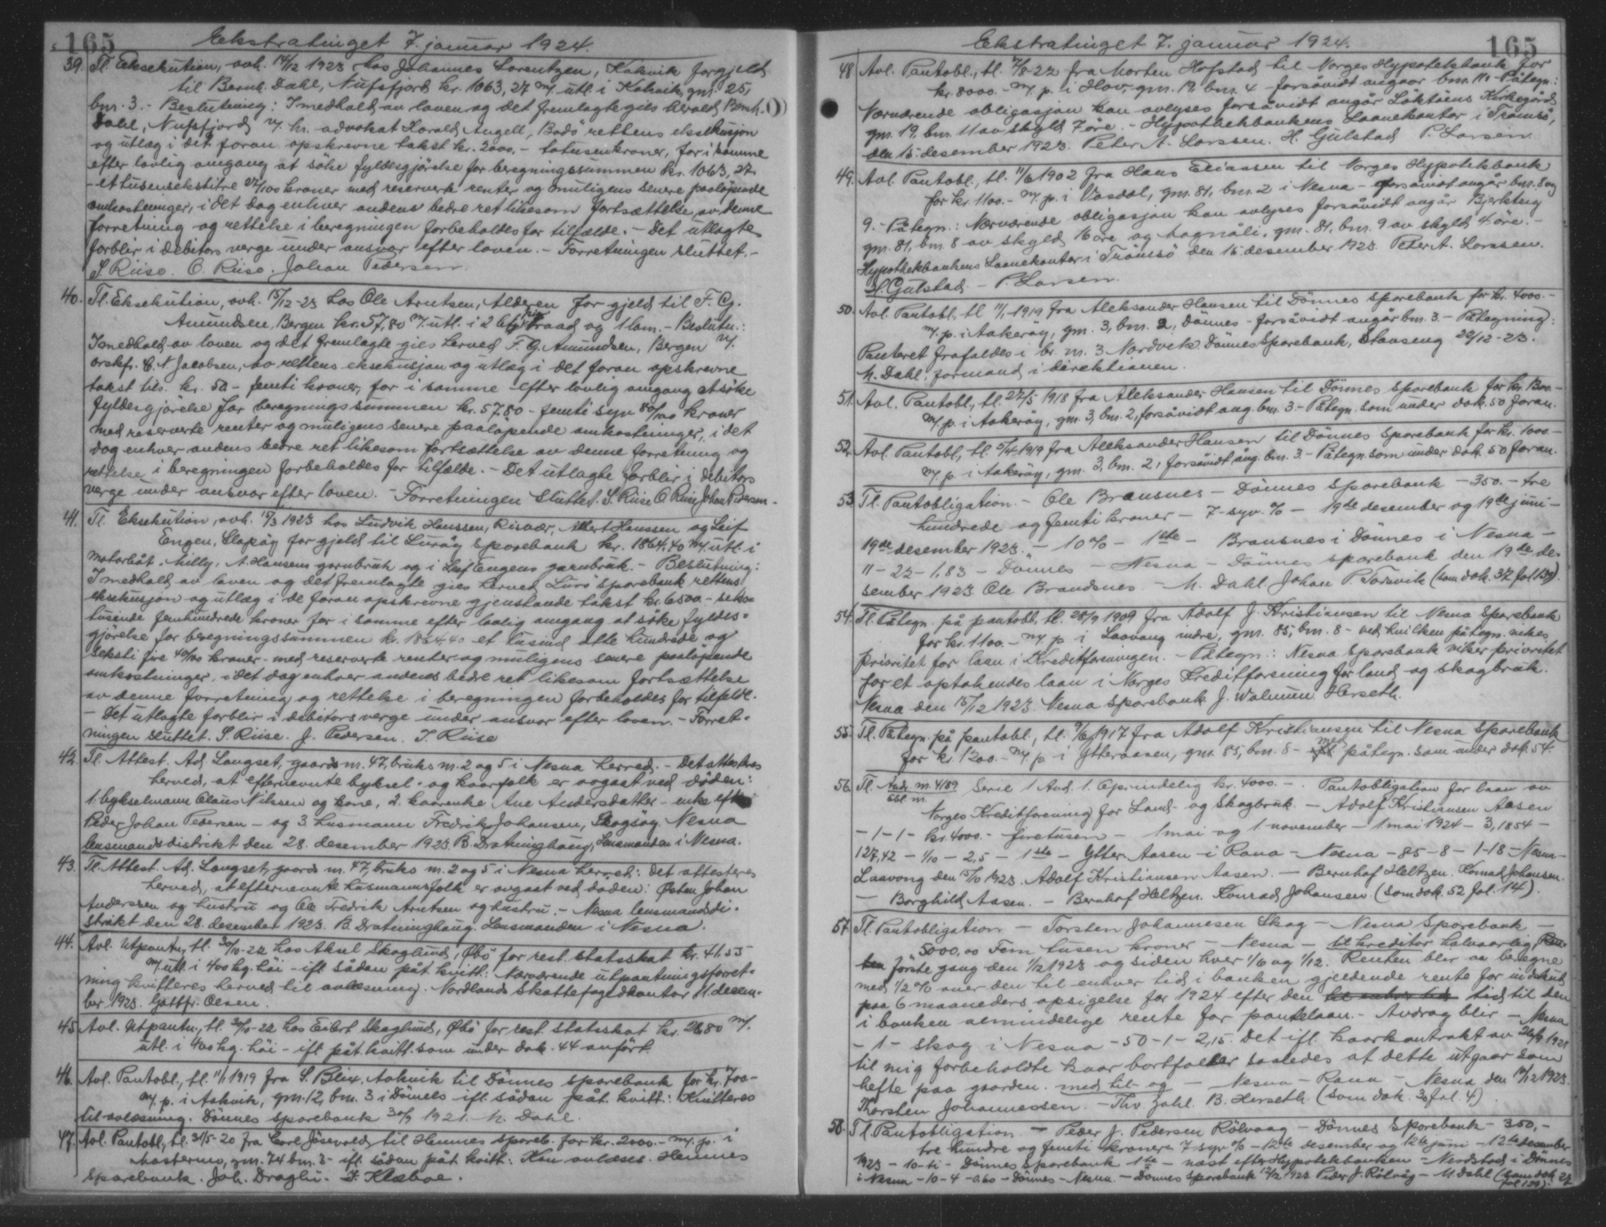 165
Ekstratinget 7. januar 1924.
39. Tl. Eksekution, avh. 14/12 1923 hos Johannes Lorentzen, Kakvik for gjeld
til Bernh. Dahl, Nufsfjord kr. 1063,27 m/ utl. i Kakvik gm. 25,
bm. 3. - Beslutning: I medhold av loven og det fremlagte gis herved Bernh.
Dahl, Nufsfjord v/ hr. advokat Harald Angell, Bodö rettens eksekusjon
og utlæg i det foran opskrevne takst kr. 2000,- totusenkroner, for i samme
efter lovlig omgang at söke fyldesgjörelse for beregningssummen kr. 1063,27
- et tusensekstitre 27/100 kroner med reserverte renter og muligens senere paalöpende
omkostninger, i det dog enhver andens bedre ret likesom fortsættelse av denne
forretning og rettelse i beregningen forbeholdes for tilfælde. - Det utlagte
forblir i debitors verge under ansvar efter loven. - Forretningen sluttet. -
S. Riise. O. Riise. Johan Pedersen.
40. Tl. Eksekution, avh. 15/12-23 hos Ole Arntsen, Alderen for gjeld til F. G.
Amundsen, Bergen kr. 57,80 m/ utl. i 2 og 1 lam. - Beslutn.:
I medhold av loven og det fremlagte gies herved F. G. Amundsen, Bergen v/
orskf. C. N. Jacobsen, rettens eksekusjon og utlæg i det foran opskrevne
takst til kr. 50 - femti kroner, for i samme efter lovlig omgang at söke
fyldesgjörelse for beregningssummen kr. 57.80 - femti syv 80/100 kroner
med reserverte renter og muligens senere paalöpende omkostninger, i det
dog enhver andens bedre ret likesom fortsættelse av denne forretning og
rettelse i beregningen forbeholdes for tilfælde. - Det utlagte forblir i debitors
verge under ansvar efter loven. - Forretningen sluttet. S. Riise O. Riise Johan Pedersen.
41. Tl. Eksekution, avh. 17/3 1923 hos Ludvik Hanssen, Risvær, Albert Hanssen og Leif
Engen, for gjeld til Luröy sparebank kr. 1864,40 m/ utl. i
motorbåt "Milly", A. Hansens garnbruk og i Leif Engens garnbruk. - Beslutning:
I medhold av loven og det fremlagte gies herved Lurö sparebank rettens
eksekusjon og utlæg i de foran opskrevne gjenstande takst kr. 6500 - seks
tusinde femhundrede kroner for i samme efter lovlig omgang at söke fyldes-
gjörelse for beregningssummen kr. 1864,40 et tusind otte hundrede og
seksti fire 40/100 kroner med reserverte renter og muligens senere paalöpende
omkostninger, i det dog enhver andens bedre ret likesom fortsættelse
av denne forretning og rettelse i beregningen forbeholdes for tilfælde.
- Det utlagte forblir i debitors verge under ansvar efter loven. - Forret-
ningen sluttet. S. Riise. J. Pedersen. T. Riise
42. Tl. Attest. Ad. Langset, gaards m. 47, bruks m. 2 og 5 i Nesna herred. - Det attesteres
herved, at efternevnte byksel- og kaarfolk er avgaat ved döden:
1. bykselmann Claus Nilssen og kone, 2. kaarenke Ane Andersdatter - enke efter
Peder Johan Petersen - og 3. husmann Fredrik Johansen, Skogsöy Nesna
lensmandsdistrikt den 28. desember 1923. B. Dratninghaug, Lensmanden i Nesna.
43. Tl. Attest. Ad. Langset, gaards m. 47, bruks m. 2 og 5 i Nesna herred: Det attesteres
herved, at efternevnte husmannsfolk er avgaat ved döden: Östen Johan
Anderssen og hustru og Ole Fredrik Arntsen og hustru. - Nesna lensmandsdi-
strikt den 28. desember 1923. B. Dratninghaug. Lensmanden i Nesna.
44. Avl. Utpantn., tl. 30/10-22 hos Aksel Skoglund, Ökö for rest. statsskat kr. 41.55
m/ utl. i 400 kg. höi - ifl. sådan påt. kvitt: Nærværende utpantningsforret-
ning kvitteres herved til avlæsning. Nordlands skattefogedkontor 11. desem-
ber 1923. Gottfr. Olsen.
45. Avl. Utpantn., tl. 30/10-22 hos Eilert Skoglund, Ökö for rest. statsskat kr. 26.80 m/.
utl. i 400 kg. höi - ifl. påt. kvitt. som under dok. 44 anfört
46. Avl. Pantobl., tl. 11/1 1919 fra S. Blix, Aakvik til Dönnes sparebank for kr. 700-
m/ p. i Aakvik, gm. 12, bm. 3 i Dönnes ifl. sådan påt. kvitt: Kvitteres
til avlæsning. Dönnes sparebank 30/ 1921. M. Dahl.
47. Avl. Pantobl., tl. 31/5-20 fra Carl Jösevold, til Hemnes spareb. for kr. 2000.- m/ p. i
gm. 74 bm. 3 - ifl. sådan påt. kvitt: Kan avlæses. Hemnes
Sparebank. Joh. Draglid. F. Klæboe.
165
Ekstratinget 7. januar 1924.
48 Avl. Pantobl., tl. 7/8-22 fra Morten Hofstad til Norges Hypotekbank for
kr. 8000.- m/ p. i Hov, gm. 19 bm. 4 - forsåvidt angaar bm. 11. - Påtegn:
Nærværende obligasjon kan avlyses forsåvidt angår Löktöens Kirkegård
gm. 19, bm. 11 av skyld 7 öre. - Hypothekbankens Laanekontor i Tromsö,
den 15 desember 1923. Peter A. Lorssen. H. Gulstad P. Larsen
49. Avl. Pantobl., tl. 11/6 1902 fra Hans Eliassen til Norges Hypotekbank
for kr. 1100.- m/ p. i Vasdal, gm. 81, bm. 2 i Nesna - forsåvidt angår bm. 8 og
9. - Påtegn.: Nærværende obligasjon kan avlyses forsåvidt angår Bjerkteig
gm. 81, bm. 8 av skyld 16 öre og Lognåli, gm. 81, bm. 9 av skyld 4 öre. -
Hypothekbankens Laanekontor i Tromsö den 15 desember 1923. Peter A. Lorssen.
H. Gulstad - P. Larsen.
50. Avl. Pantobl. tl. 11/1-1919 fra Aleksander Hansen til Dönnes sparebank for kr. 4000.-
m/ p. i Aakeröy, gm. 3, bm. 2, Dönnes - forsåvidt angår bm. 3. - Påtegning:
Panteret frafaldes i br. m. 3 Nordvik. Dönnes sparebank, 29/12-23.
M. Dahl, formand i direktionen.
51. Avl. Pantobl., tl. 27/5 1918 fra Aleksander Hansen til Dönnes sparebank for kr. 1300-
m/ p. i Aakeröy, gm. 3, bm. 2, forsåvidt ang. bm. 3. - Påtegn. som under dok. 50 foran.
52. Avl. Pantobl., tl. 5/4 1919 fra Aleksander Hansen til Dönnes sparebank for kr. 1000.-
m/ p. i Aakeröy, gm. 3, bm. 2, forsåvidt ang. bm. 3. - Påtegn. som under dok. 50 foran.
53. Tl. Pantobligation - Ole Bransnes - Dönnes sparebank - 350.- tre
hundrede og femti kroner - 7 - syv % - 19de desember og 19de juni -
19de desember 1923. - 10 % - 1ste - Bransnes i Dönnes i Nesna -
11 - 22 - 1,83 - Dönnes - Nesna - Dönnes sparebank den 19de de-
sember 1923 Ole Brandsnes - M. Dahl Johan P. Forsvik (som dok. 37 fol. 129).
54. Tl. Påtegn. på pantobl. tl. 28/9 1909 fra Adolf J. Kristiansen til Nesna sparebank
for kr. 1100.- m/ p. i Laavong indre, gm. 85, bm. 8 - ved hvilken påtegn. vikes
prioritet for laan i Kreditforeningen. - Påtegn.: Nesna sparebank viker prioritet
for et optakendes laan i Norges Kreditforening for land og skogbruk.
Nesna den 15/12 1923 Nesna sparebank J. Walnum Herseth.
55. Tl. Påtegn. på pantobl., tl. 9/6 1917 fra Adolf Kristiansen til Nesna sparebank
for kr. 1200.- m/ p. i Ytteraasen, gm. 85, bm. 8 - med påtegn. som under dok. 54.
56. Tl. m. 4189 Serie 1 Avd. 1. Oprindelig kr. 4000.- Pantobligation for laan av
Norges Kreditforening for Land- og Skogbruk. - Adolf Kristiansen Aasen
- 1 - 1 - kr. 4000.- firetusen - 1 mai og 1 november - 1 mai 1924 - 3,1854 -
127,42 - 1/10 - 2,5 - 1ste - Ytter Aasen - i Rana - Nesna - 85 - 8 - 1-18 - Nesna -
Laavong den 15/10 1923. Adolf Kristiansen Aasen. - Bernhof Heltzen. Konrad Johansen.
- Borghild Aasen. - Bernhof Heltzen. Konrad Johansen (som dok. 52 fol. 14).
57. Tl. Pantobligation - Torsten Johannesen Skog - Nesna Sparebank
5000,00 Fem tusen kroner - Nesna - til kreditor halvaarlig,
förste gang den 1/12 1923 og siden hver 1/6 og 1/12. Renten blir at beregne
med 1/2 % over den til enhver tid i banken gjeldende rente for indskud
paa 6 maaneders opsigelse for 1924 efter den tid til den
i banken almindelige rente for pantelaan. - Avdrag blir - Nesna
- 1 - Skog i Nesna - 50 - 1 - 2,15. Det ifl. kaarkontrakt av 26/9 1921
til mig forbeholdte kaar bortfalder saaledes at dette utgaar som
hefte paa gaarden. med til og - Nesna - Rana - Nesna den 14/12 1923
Thorsten Johannessen. - Thv. Zahl. B. Herseth. (som dok. 30 fol. 4).
58. Tl. Pantobligation - Peder J. Pedersen Rölvaag - Dönnes Sparebank - 350,-
tre hundre og femti kroner - 7 syv % - 12te desember og 12te juni - 12te desember
1923 - 10 - ti - Dönnes sparebank 1ste - næst efter Hypotekbanken - Nordstad i Dönnes
i Nesna - 10 - 4 - 0,60 - Dönnes - Nesna - Dönnes Sparebank 12/12 1923 Peder J. Rölvåg - M. Dahl (som dok. 37
fol. 129).